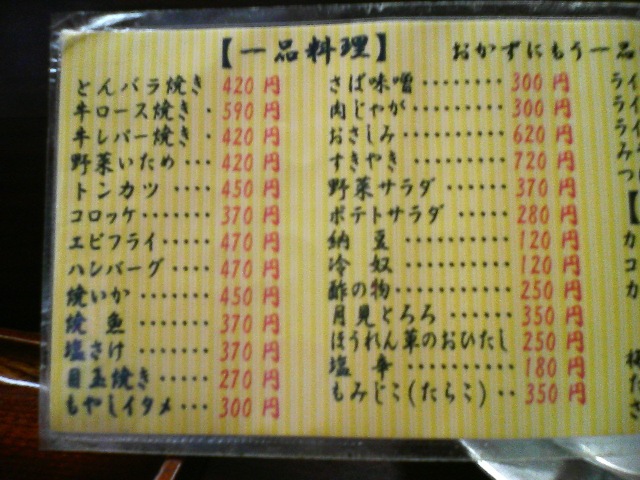 【一品料理】 おかずにもう一品
とんバラ焼き 420円
牛ロース焼き・590円
牛レバー焼き・420円
野菜いため・・・420円
トンカツ・・・・450円
コロッケ・・・・・・370円
エビフライ・・・・・470円
ハンバーグ・・・・470円
焼いか・・・・・・・450円
焼 魚・・・・・・・370円
塩さけ・・・・・・・370円
目玉焼き・・・・・270円
もやしイタメ・・・300円
さば味噌・・・・・・・・300円
肉じゃが・・・・・・・・・300円
おさしみ・・・・・・・・・620円
すきやき・・・・・・・・・720円
野菜サラダ・・・・・・370円
ポテトサラダ・・・・・280円
納 豆・・・・・・・・・・120円
冷 奴・・・・・・・・・・120円
酢の物・・・・・・・・・・250円
月見とろろ・・・・・・350円
ほうれん草のおひたし 250円
塩 辛・・・・・・・・・・180円
もみじこ(たらこ)・・350円
ライ
ライ
ライ
み
つ
【
カ
コ
カ